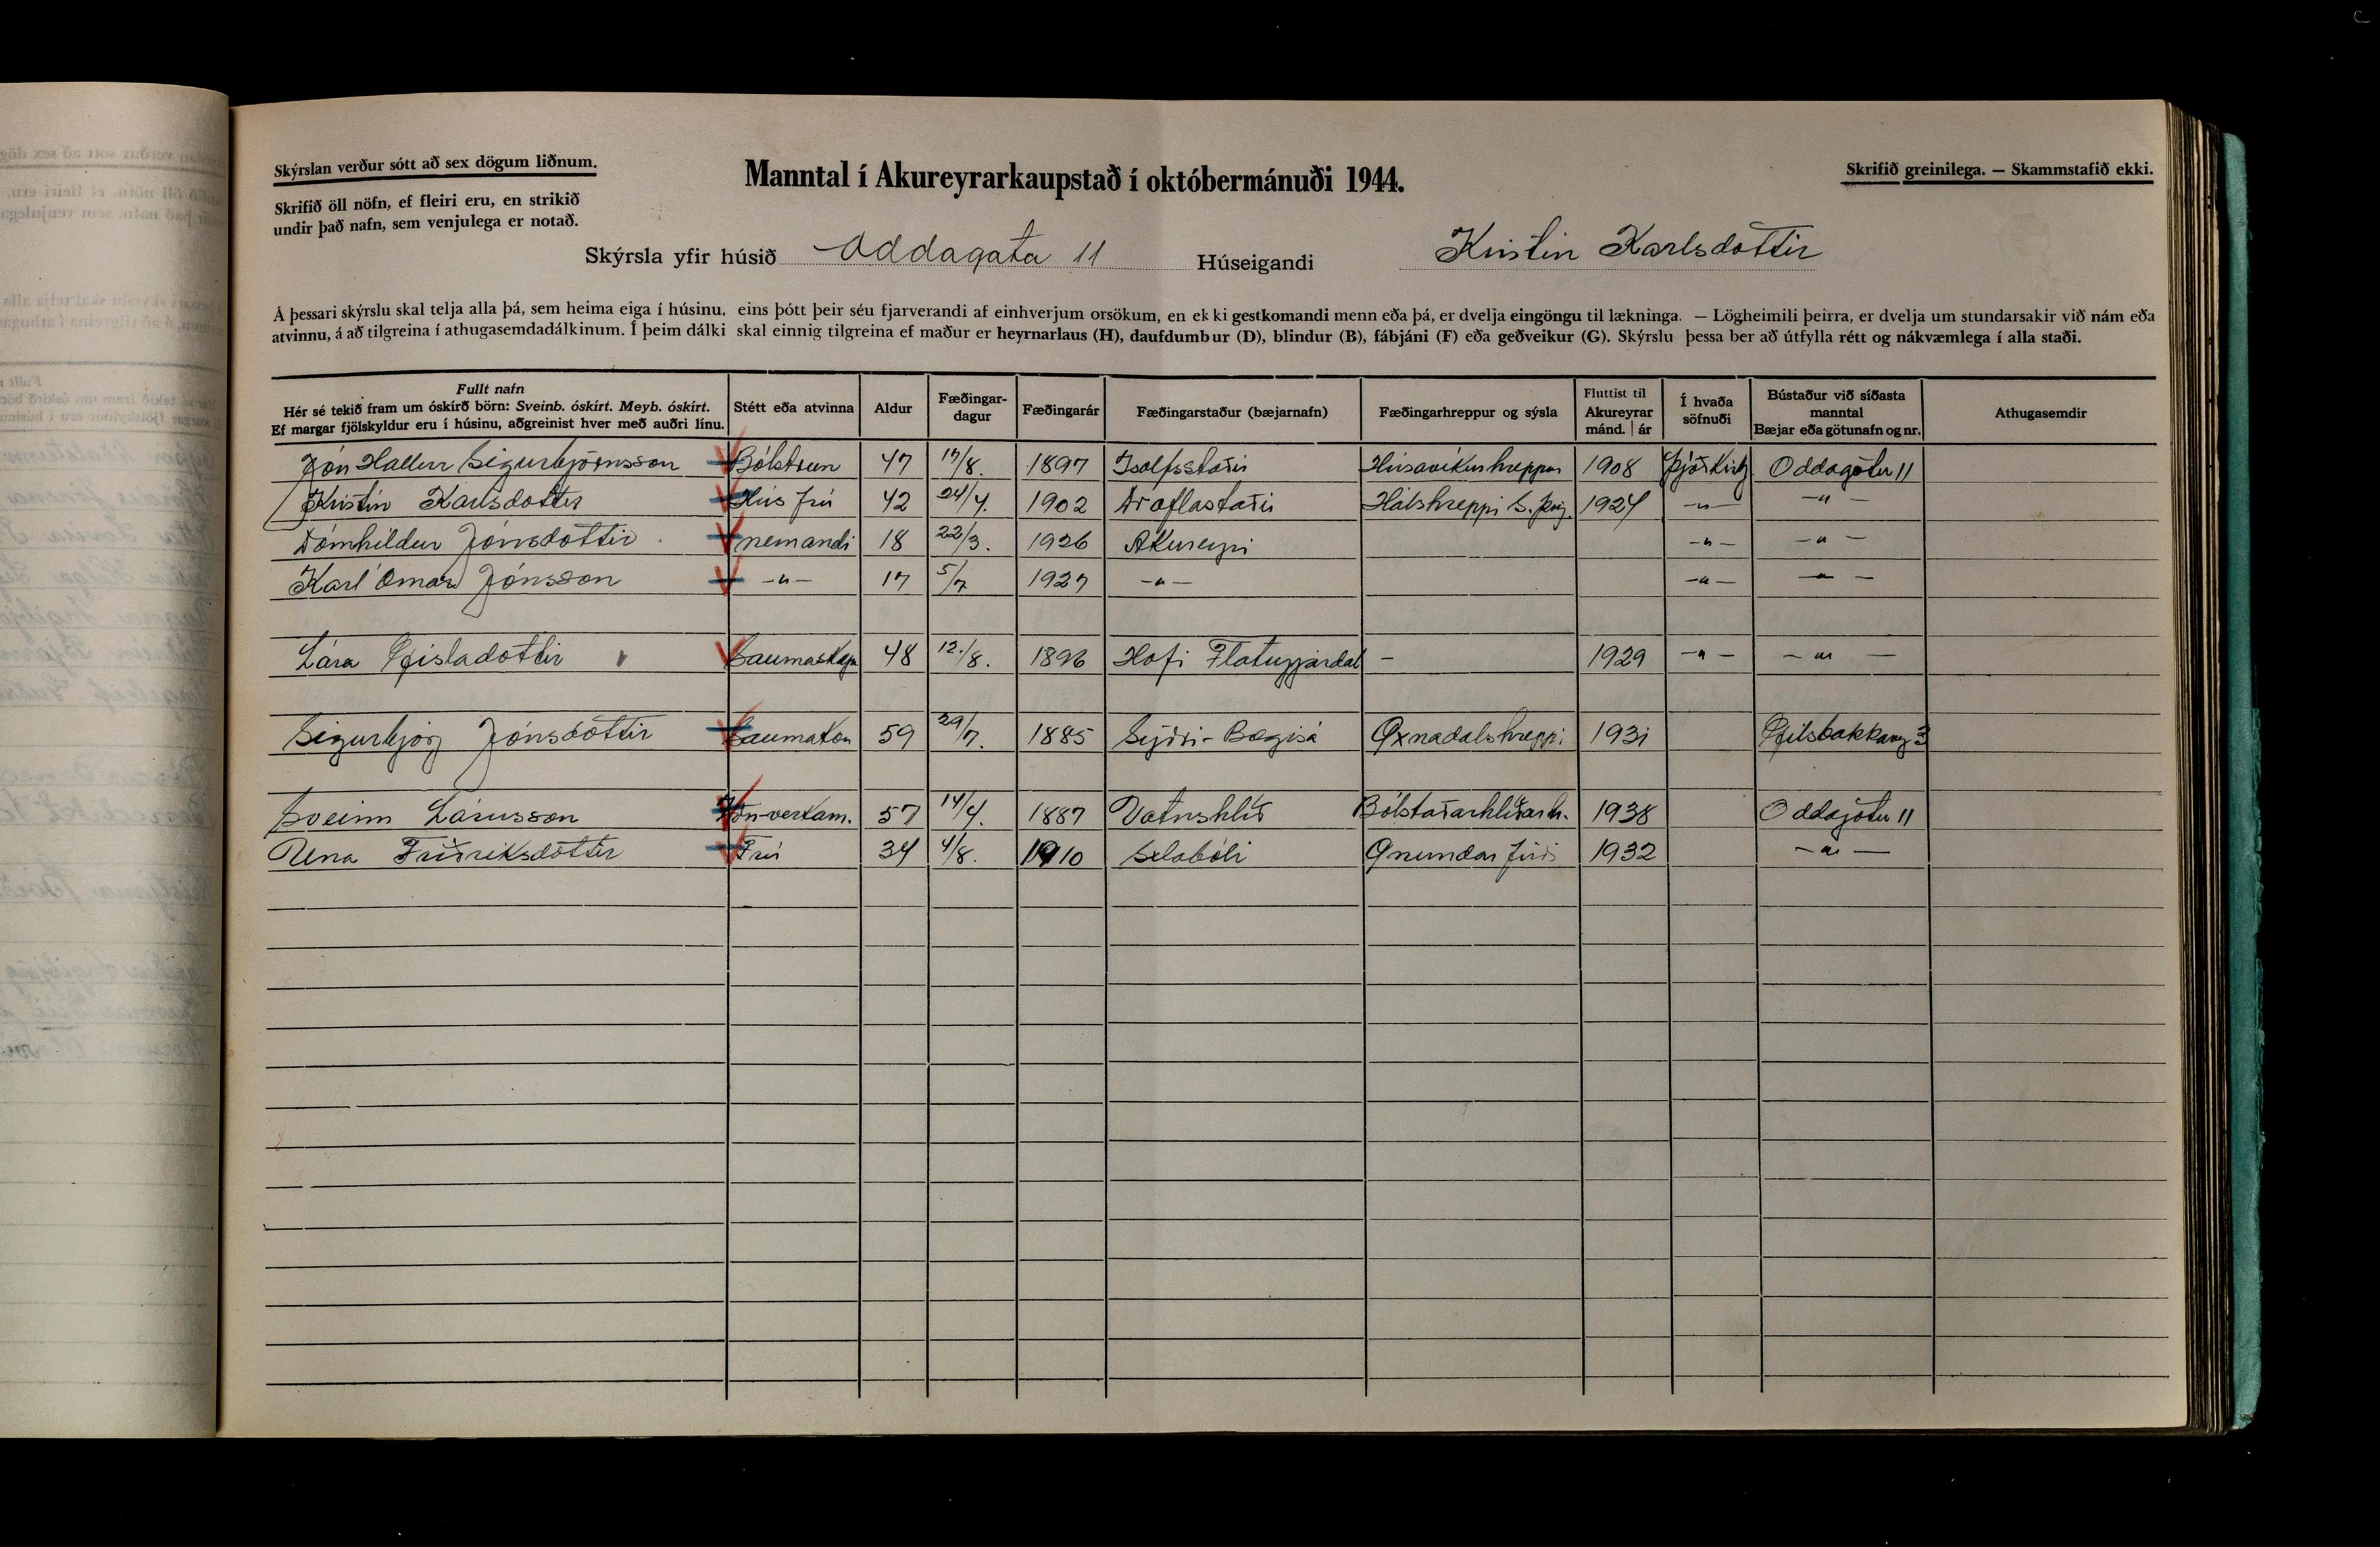 Skýrslan verður sótt að sex dögum liðnum.
Manntal í Akureyrarkaupstað í októbermánuði 1944.
Skrifið greinilega. — Skammstafið ekki.
Skrifið öll nöfn, ef fleiri eru, en strikið
undir það nafn, sem venjulega er notað.
Skýrsla yfir húsið Oddagata 11 Húseigandi Kristín Karlsdóttir
Á þessari skýrslu skal telja alla þá, sem heima eiga í húsinu, eins þótt þeir séu fjarverandi af einhverjum orsökum, en ekki gestkomandi menn eða þá, er dvelja eingöngu til lækninga. — Lögheimili þeirra, er dvelja um stundarsakir við nám eða
atvinnu, á að tilgreina í athugasemdadálkinum. Í þeim dálki skal einnig tilgreina ef maður er heyrnarlaus (H), daufdumbur (D), blindur (B), fábjáni (F) eða geðveikur (G). Skýrslu þessa ber að útfylla rétt og nákvæmlega í alla staði.
Fullt nafn
Hér sé tekið fram um óskírð börn: Sveinb. óskírt. Meyb. óskírt.
Ef margar fjölskyldur eru í húsinu, aðgreinist hver með auðri línu.
Stétt eða atvinna
Aldur
Fæðingar-
dagur
Fæðingarár
Fæðingarstaður (bæjarnafn)
Fæðingarhreppur og sýsla
Fluttist til
Akureyrar
mánd. | ár
Í hvaða
söfnuði
Bústaður við síðasta
manntal
Bæjar eða götunafn og nr.
Athugasemdir
Jón Hallur Sigurbjörnsson Bólstrun 47 17/8. 1897 Ísólfsstaðir Húsavíkurhreppur 1908 Oddagötu 11
Kristín Karlsdóttir Húsfrú 42 24/4. 1902 Draflastaðir Hálshreppi S. Þing. 1924 -"- -"-
Dómhildur Jónsdóttir nemandi 18 22/3. 1926 Akureyri -"- -"-
Karl Ómar Jónsson -"- 17 5/7 1927 -"- -"- -"-
Lára Gísladóttir 48 12./8. 1896 Hofi Flateyjardal - 1929 -"- -"-
Sigurbjörg Jónsdóttir Saumakon 59 29/7. 1885 Syðri-Bægisá Öxnadalshreppi 1931 Gilsbakkaveg 3
Sveinn Lárusson Iðn-verkam. 57 14/4. 1887 Vatnshlíð Bólstaðarhlíðarh. 1938 Oddagötu 11
Una Friðriksdóttir Frú 34 4/8. 1910 Selabóli Önundarfirði 1932 -"-